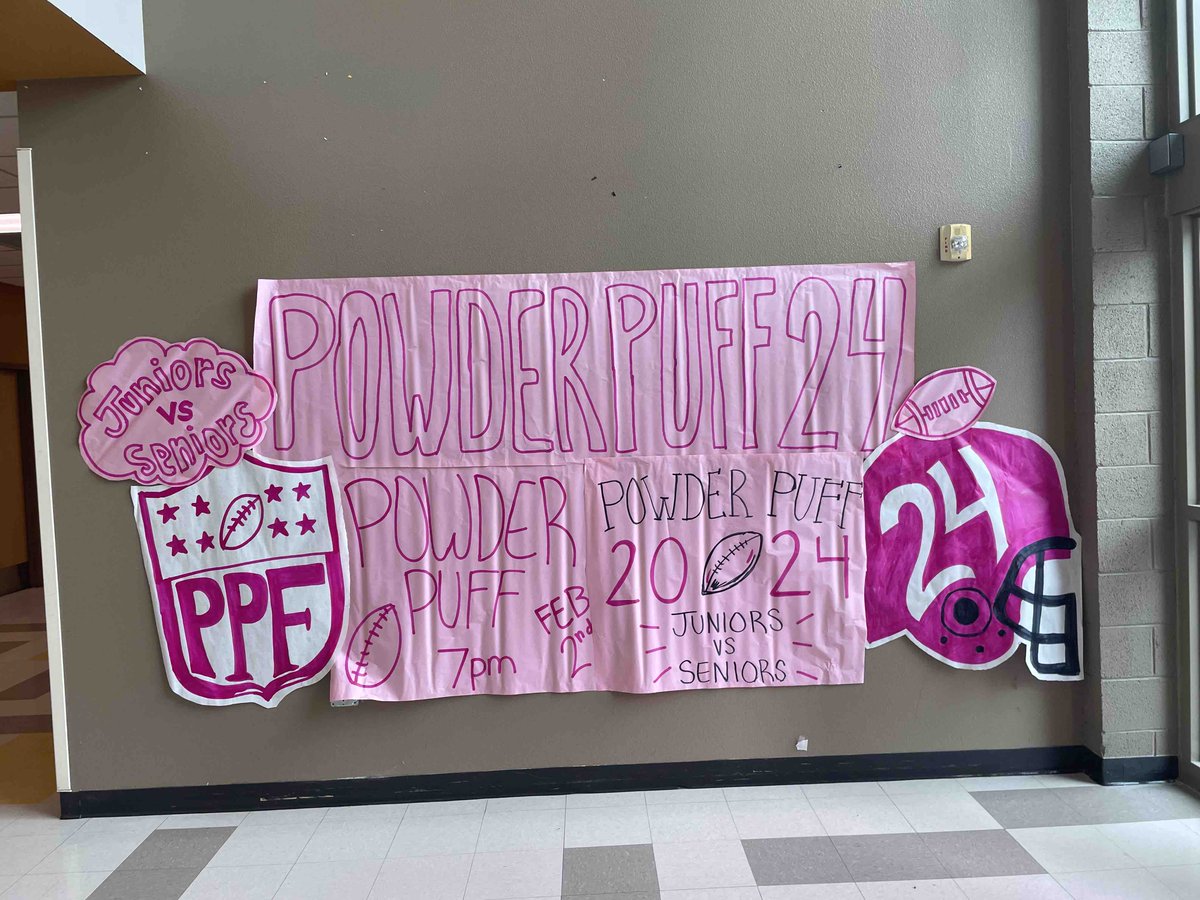 POWDER PUFF 24
Juniors
vs
Seniors
PPF
POWDER
PUFF
7pm
FEB
2nd
POWDER PUFF
20 24
JUNIORS
VS
SENIORS
24